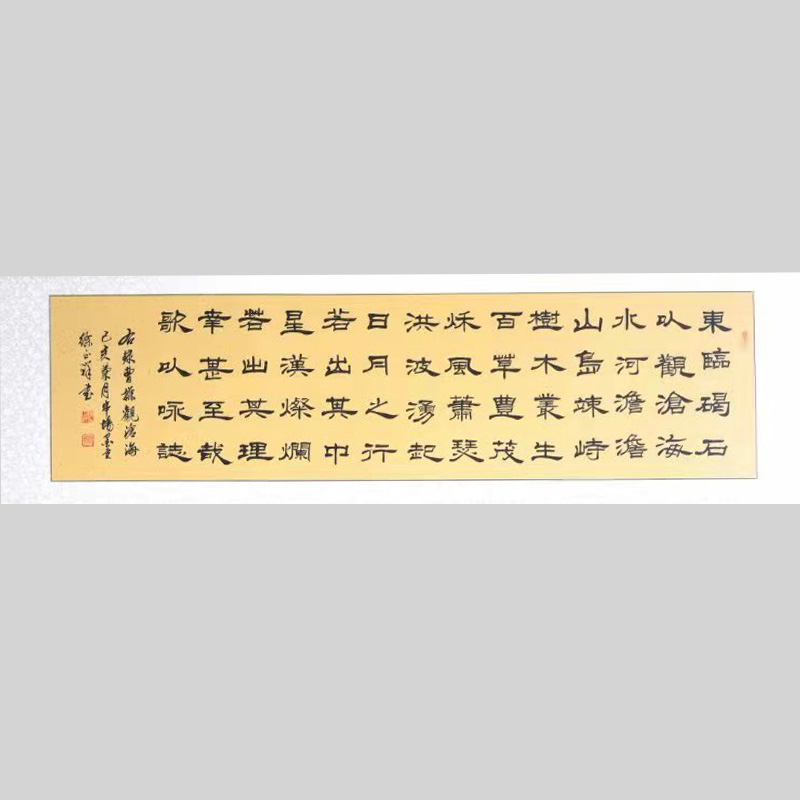 東臨碣石
以觀滄海
水河澹澹
山島竦峙
樹木叢生
百草豊茂
秋風蕭瑟
洪波湧起
日月之行
若出其中
星漢燦爛
若出其理
幸甚至哉
歌以咏誌
右録曹操觀滄海
己亥榮月
徐正祥書